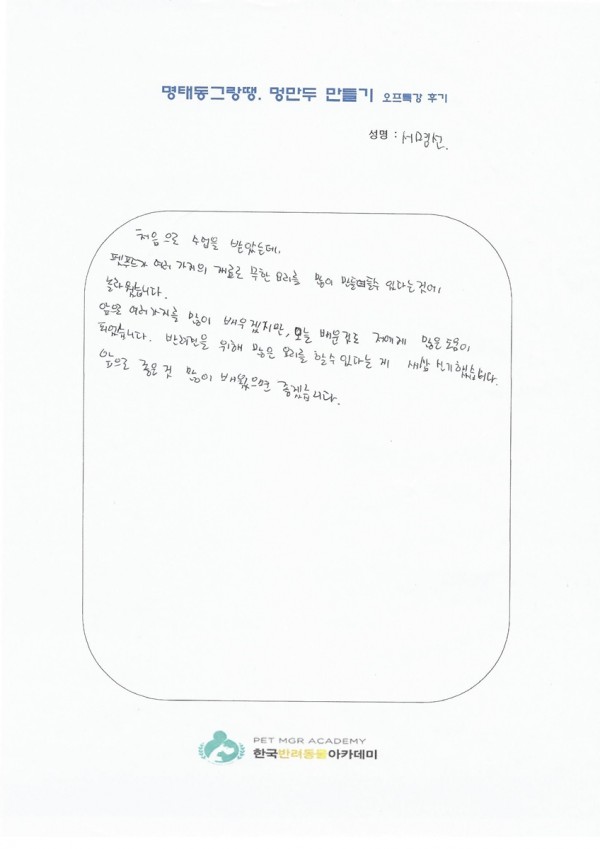 명태동그랑땡. 멍만두 만들기 오프특강 후기
성명 : 서명선.
처음으로 수업을 받았는데,
펫푸드가 여러 가지의 재료로 무한 요리를 많이 만들 수 있다는 것에
놀라웠습니다.
앞으로 여러가지를 많이 배우겠지만, 오늘 배운걸로 저에게 많은 도움이
되었습니다. 반려견을 위해 많은 요리를 할수있다는 게 새삼 신기했습니다.
앞으로 좋은 것 많이 배웠으면 좋겠습니다.
PET MGR ACADEMY
한국반려동물아카데미